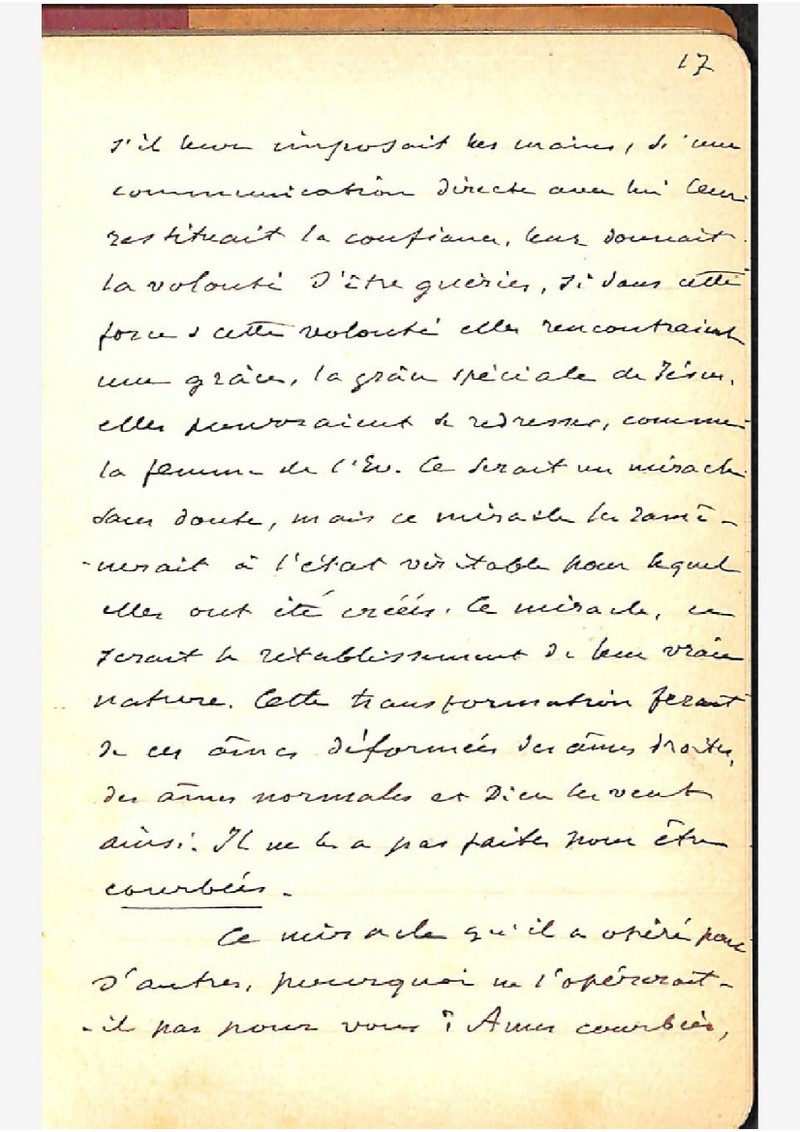 17
s'il leur imposait les mains, si une
communication directe avec lui leur
restituait la confiance, leur donnait
la volonté d'être guéries, si dans cette
force & cette volonté elles rencontraient
une grâce, la grâce spéciale de Jésus,
elles pourraient se redresser, comme
la femme de l'Ev. Ce serait un miracle
sans doute, mais ce miracle les ramè-
-nerait à l'état véritable pour lequel
elles ont été créées. Ce miracle, ce
serait le rétablissement de leur vraie
nature. Cette transformation ferait
de ces âmes déformées des âmes droites,
des âmes normales et Dieu les veut
ainsi. Il ne les a pas faites pour être
courbées.
Ce miracle qu'il a opéré pour
d'autres, pourquoi ne l'opérerait-
-il pas pour vous ? Ames courbées,